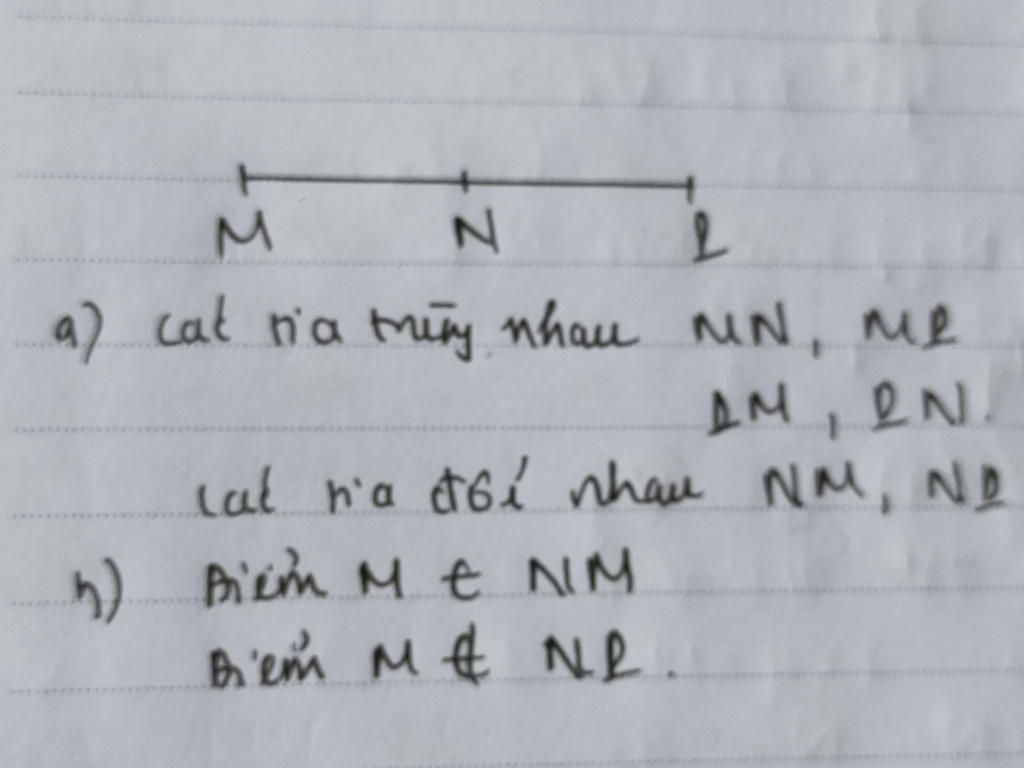 M N P
a) các tia trùng nhau MN, MP
PM, PN.
các tia đối nhau NM, NP
b) Điểm M ∈ NM
Điểm M ∉ NP.